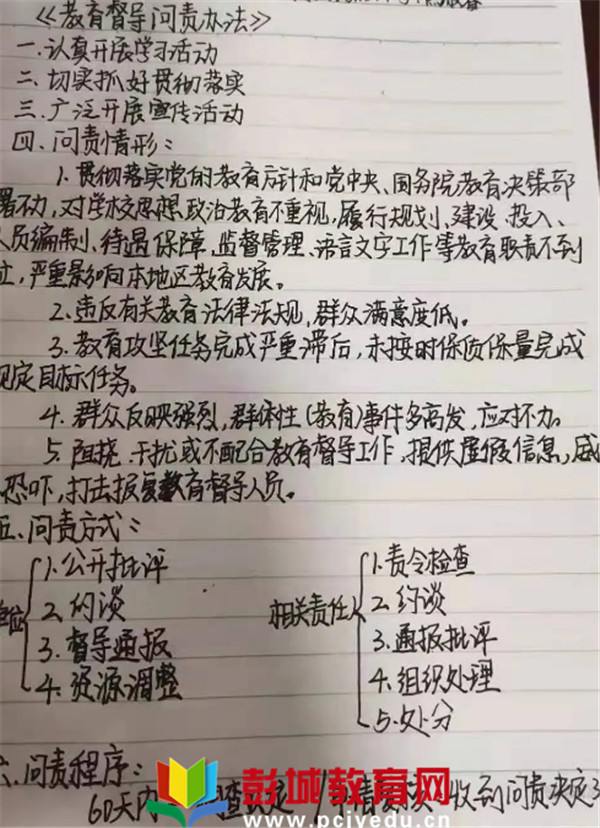 《教育督导问责办法》
一.认真开展学习活动
二.切实抓好贯彻落实
三.广泛开展宣传活动
四.问责情形：
1.贯彻落实党的教育方针和党中央、国务院教育决策部
署不力,对学校思想政治教育不重视,履行规划、建设、投入、
人员编制、待遇保障、监督管理、语言文字工作等教育职责不到
位,严重影响本地区教育发展。
2.违反有关教育法律法规,群众满意度低。
3.教育攻坚任务完成严重滞后,未按时保质保量完成
规定目标任务。
4.群众反映强烈,群体性(教育)事件多高发,应对不力。
5.阻挠、干扰或不配合教育督导工作,提供虚假信息,威
恐吓,打击报复教育督导人员。
五.问责方式：
单位
1.公开批评
2.约谈
3.督导通报
4.资源调整
相关责任人
1.责令检查
2.约谈
3.通报批评
4.组织处理
5.处分
六.问责程序：
60天内
收到问责决定3
彭城教育网
www.pcjyedu.cn